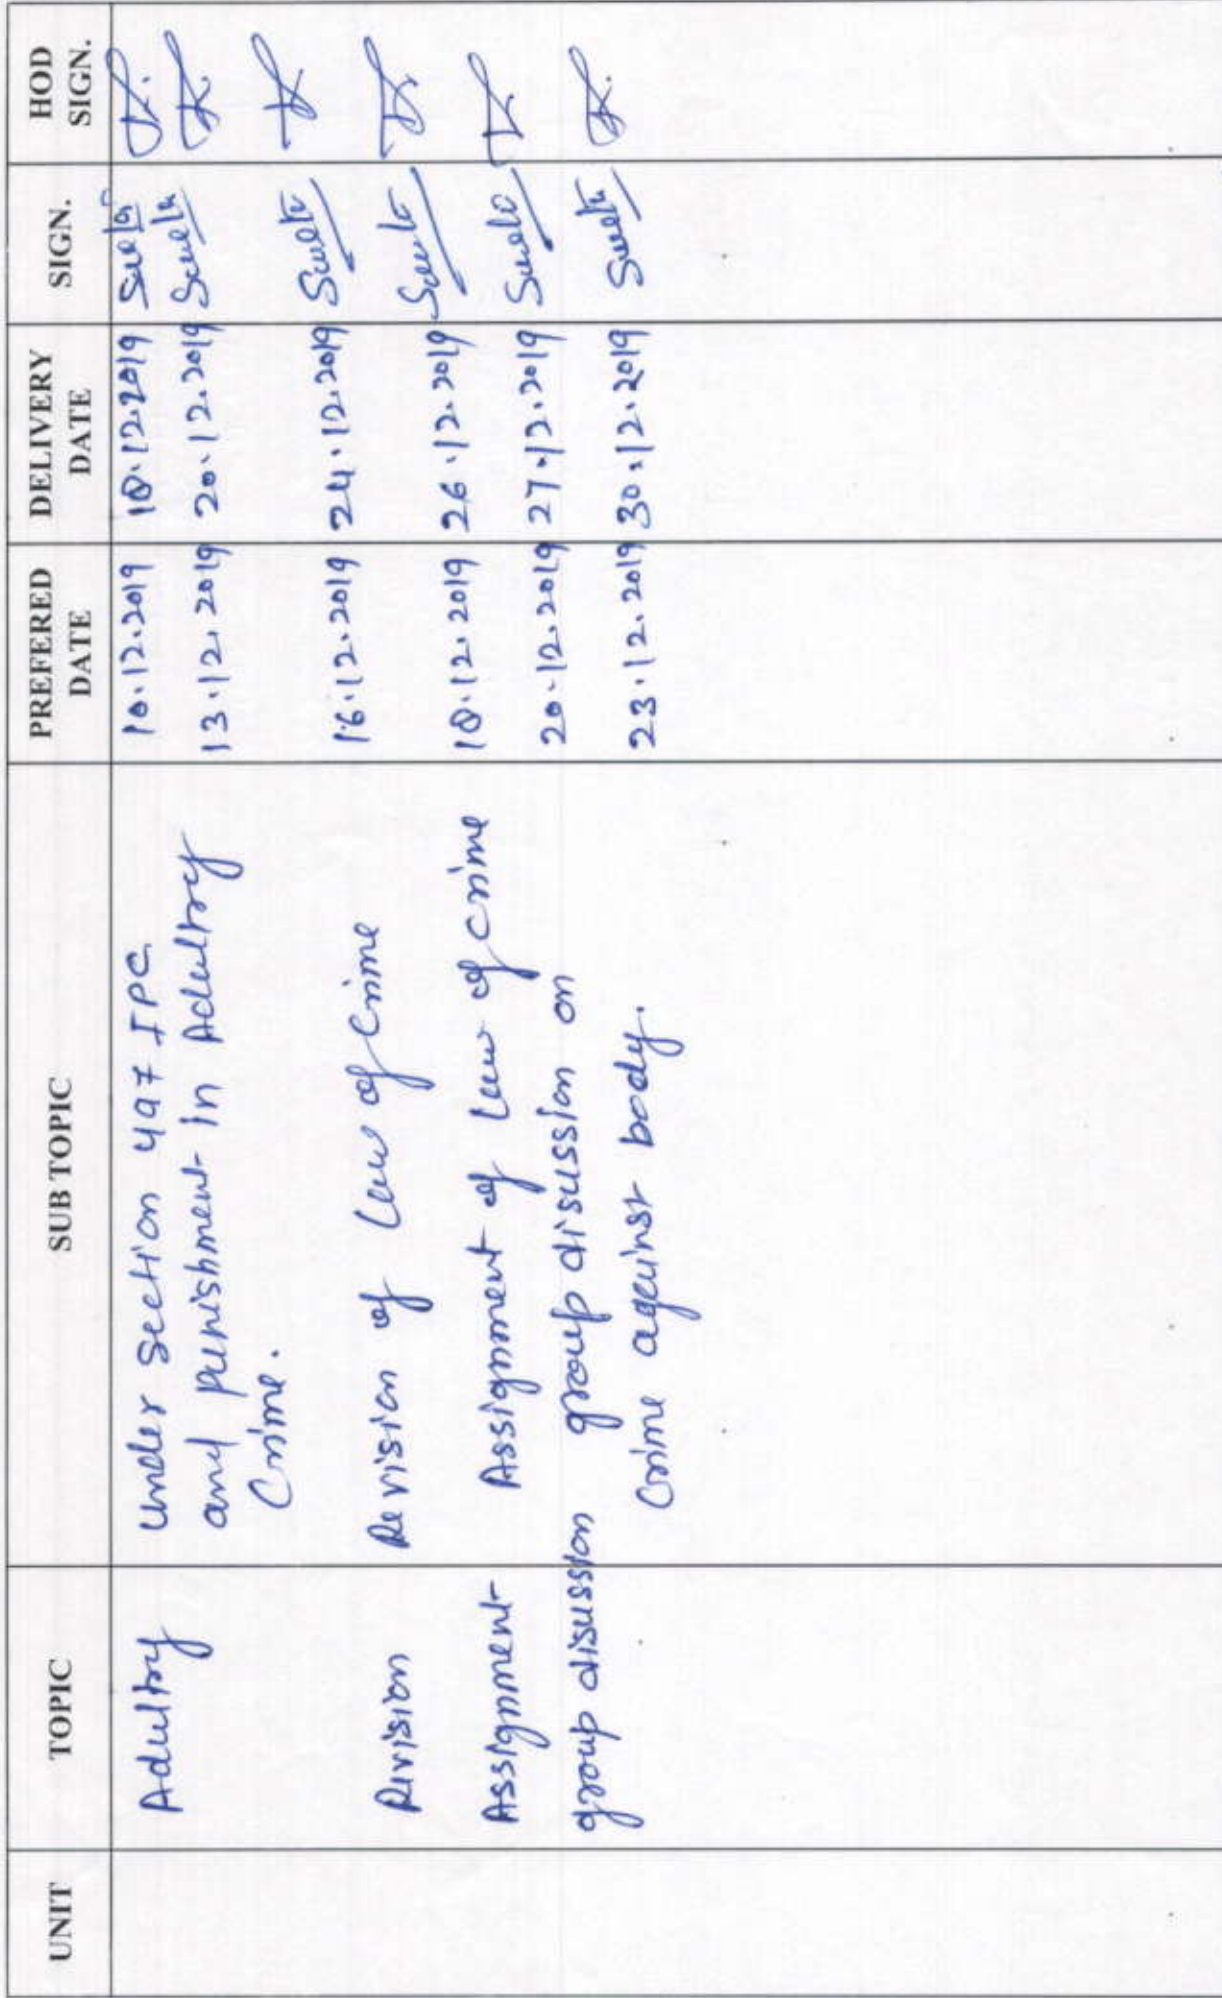 UNIT TOPIC SUB TOPIC PREFERED DATE DELIVERY DATE SIGN. HOD SIGN.
Adultry under section 497 IPC 10.12.2019 18.12.2019 Sweta
and punishment in Adultry 13.12.2019 20.12.2019 Sweta
Crime.
16.12.2019 24.12.2019 Sweta
Revision Revision of Law of Crime
18.12.2019 26.12.2019 Sweta
Assignment Assignment of Law of crime
20.12.2019 27.12.2019 Sweta
group disussion group disussion on
23.12.2019 30.12.2019 Sweta
Crime against body.